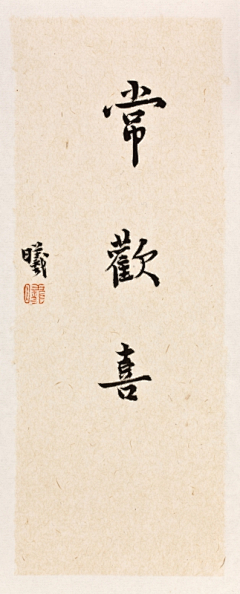 常歡喜
曦